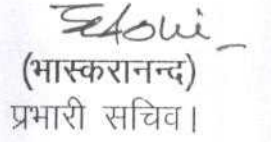 (भास्करानन्द)
प्रभारी सचिव।